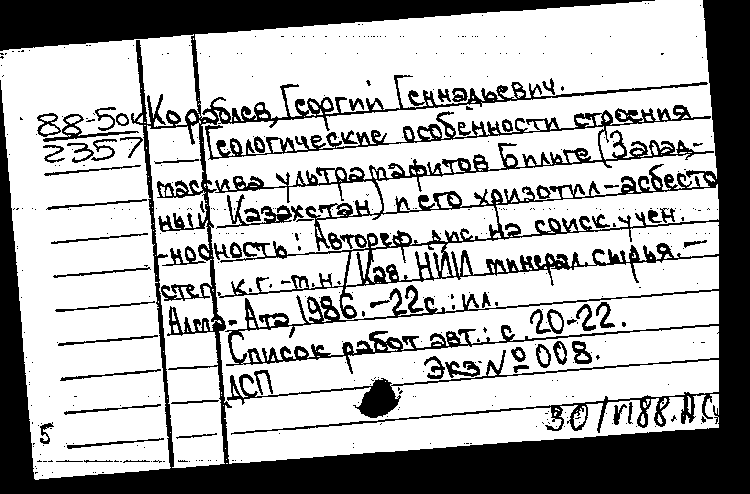 88-5ок Кораблев, Георгий Геннадьевич.
2357 Геологические особенности строения
массива ультрамафитов Бпльге (Запад-
ный Казахстан) и его хризотил-асбесто
-носность: Автореф. дис. на соиск. учен.
степ. к.г.-м.н. / Каз. НИИ минерал. сырья. —
Алма-Ата, 1986. - 22с.: ил.
Список работ авт.: с. 20-22.
ДСП Экз № 008.
5 30/VI88.